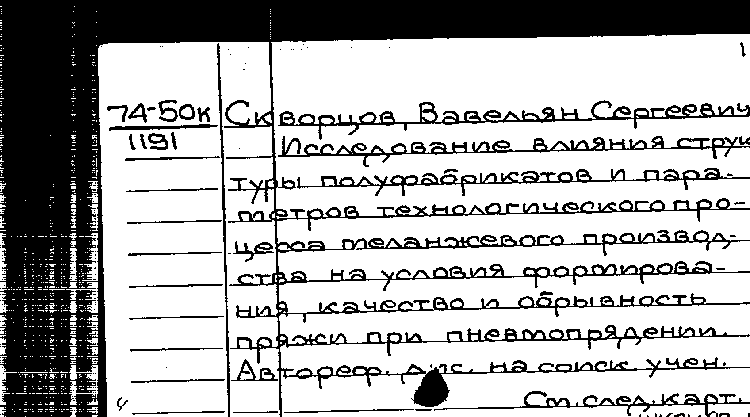 1
74-50к Скворцов, Вавельян Сергеевич
1191 Исследование влияния струк
туры полуфабрикатов и пара-
метров технологического про-
цесса меланжевого производ-
ства на условия формирова-
ния, качество и обрывность
пряжи при пневмопрядении.
Автореф. дис. на соиск. учен.
См. след. карт.